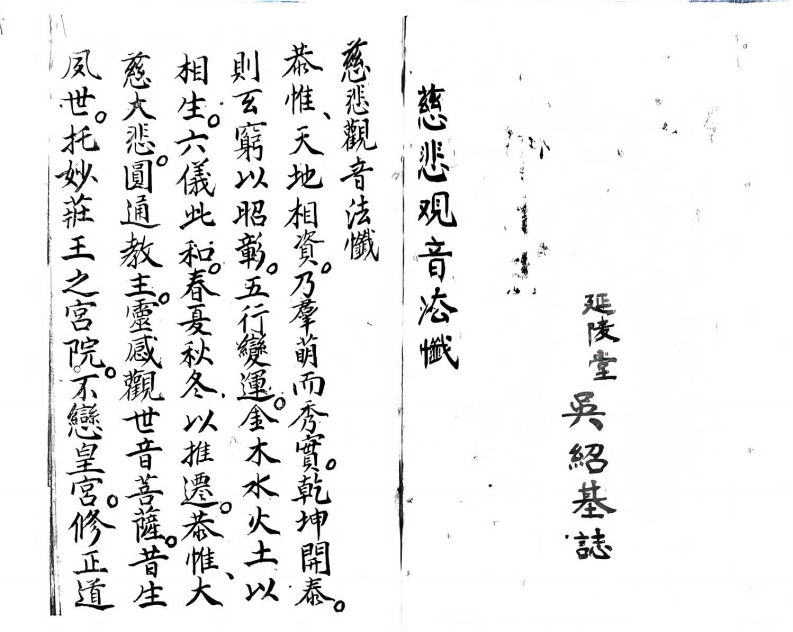 延陵堂
吳紹基誌
慈悲观音法懺
慈悲觀音法懺
恭惟、天地相資。乃羣萌而秀實。乾坤開泰。
則玄窮以昭彰。五行變運。金木水火土以
相生。六儀此和。春夏秋冬、以推遷。恭惟、大
慈大悲。圓通教主。靈感觀世音菩薩。昔生
夙世。托妙莊王之宮院。不戀皇宮。修正道